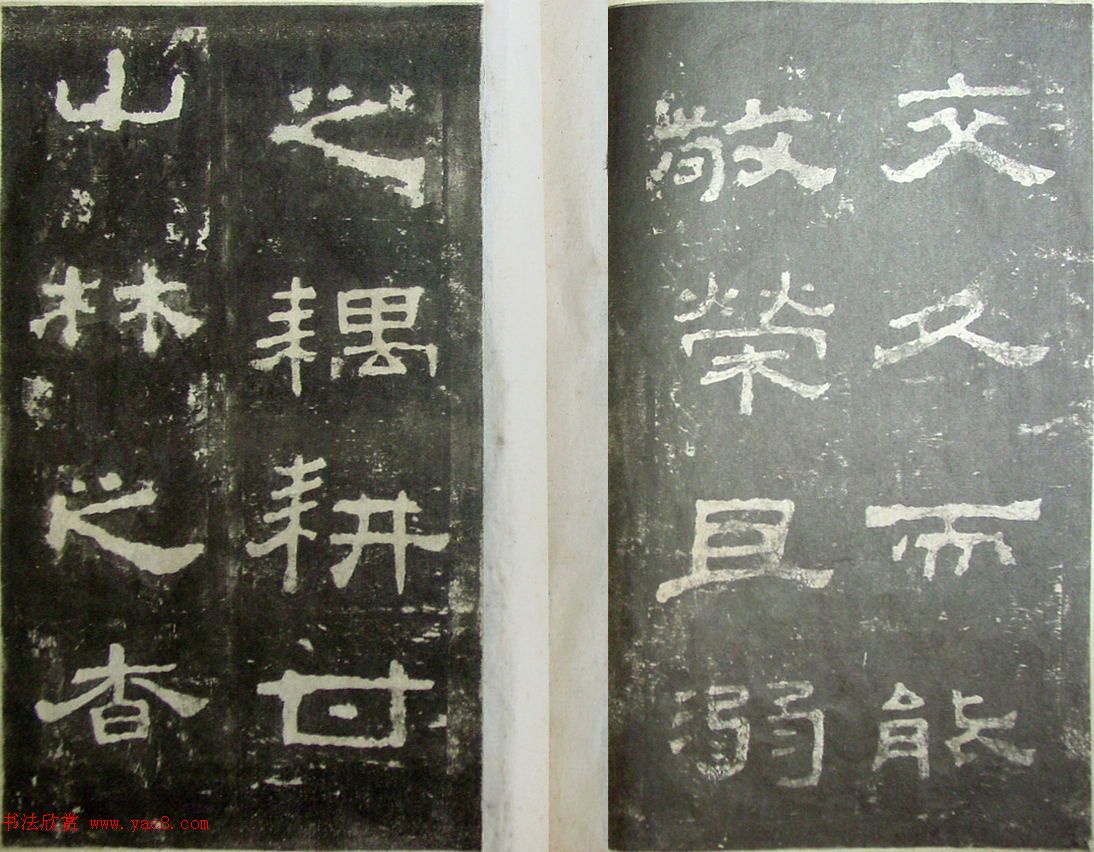 交久而能
敬榮且溺
之耦耕甘
山林之杳
书法欣赏 www.yac8.com